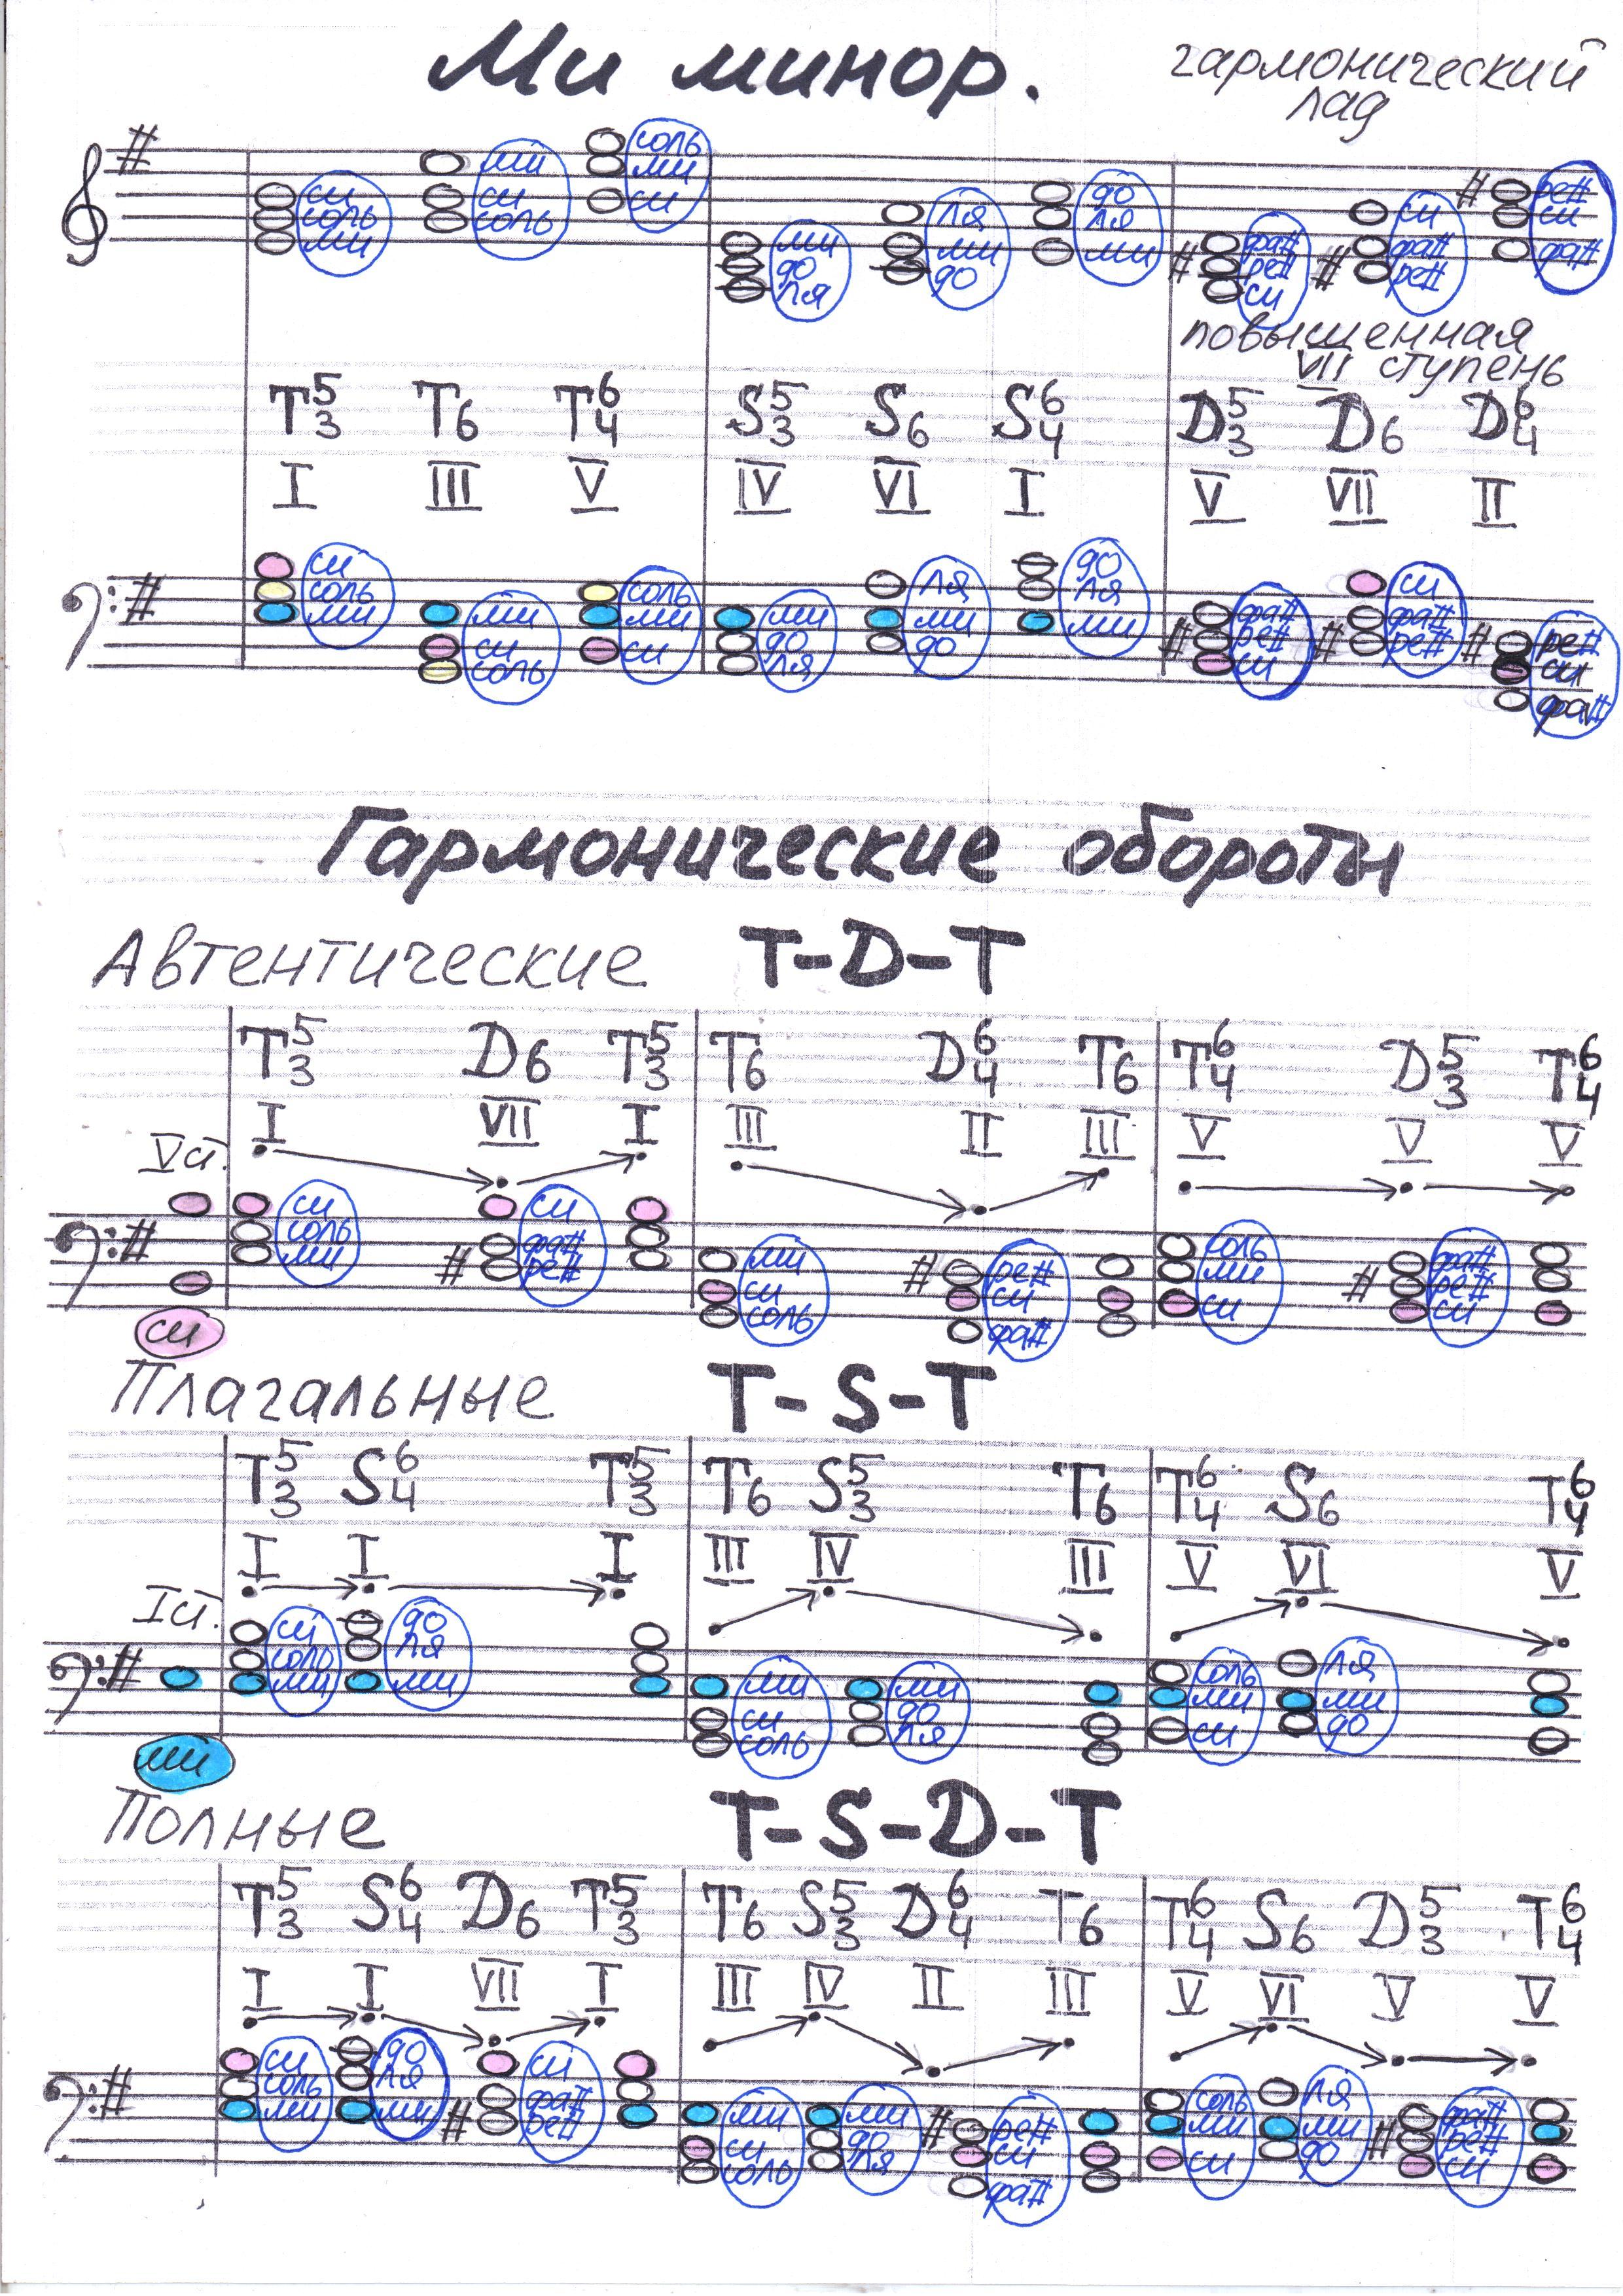 Ми минор. гармонический
лад
си соль ми ми си соль соль ми си ми до ля ля ми до до ля ми фа# ре# си си фа# ре# ре# си фа#
повышенная
VII ступень
T5/3 T6 T6/4 S5/3 S6 S6/4 D5/3 D6 D6/4
I III V IV VI I V VII II
си соль ми ми си соль соль ми си ми до ля ля ми до до ля ми фа# ре# си си фа# ре# ре# си фа#
Гармонические обороты
Автентические T-D-T
T5/3 D6 T5/3 T6 D6/4 T6 T6/4 D5/3 T6/4
I VII I III II III V V V
Vст.
си соль ми си фа# ре# ми си соль ре# си фа# соль ми си фа# ре# си
си
Плагальные T-S-T
T5/3 S6/4 T5/3 T6 S5/3 T6 T6/4 S6 T6/4
I I I III IV III V VI V
Iст.
си соль ми до ля ми ми си соль ми до ля соль ми си ля ми до
ми
Полные T-S-D-T
T5/3 S6/4 D6 T5/3 T6 S5/3 D6/4 T6 T6/4 S6 D5/3 T6/4
I I VII I III IV II III V VI V V
си соль ми до ля ми си фа# ре# ми си соль ми до ля ре# си фа# соль ми си ля ми до фа# ре# си